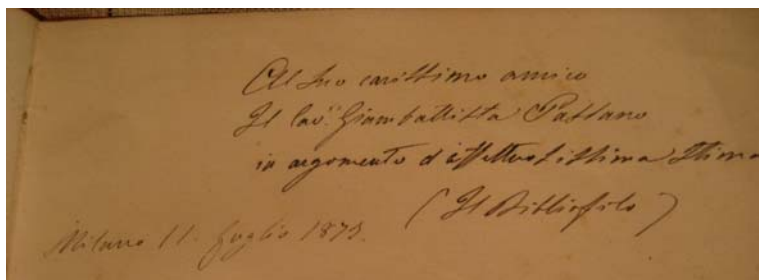 Al suo carissimo amico
Il Cav.r Giambattista Passano
in argomento d'affettuosissima stima
(Il Bibliofilo)
Milano 11. Luglio 1873.